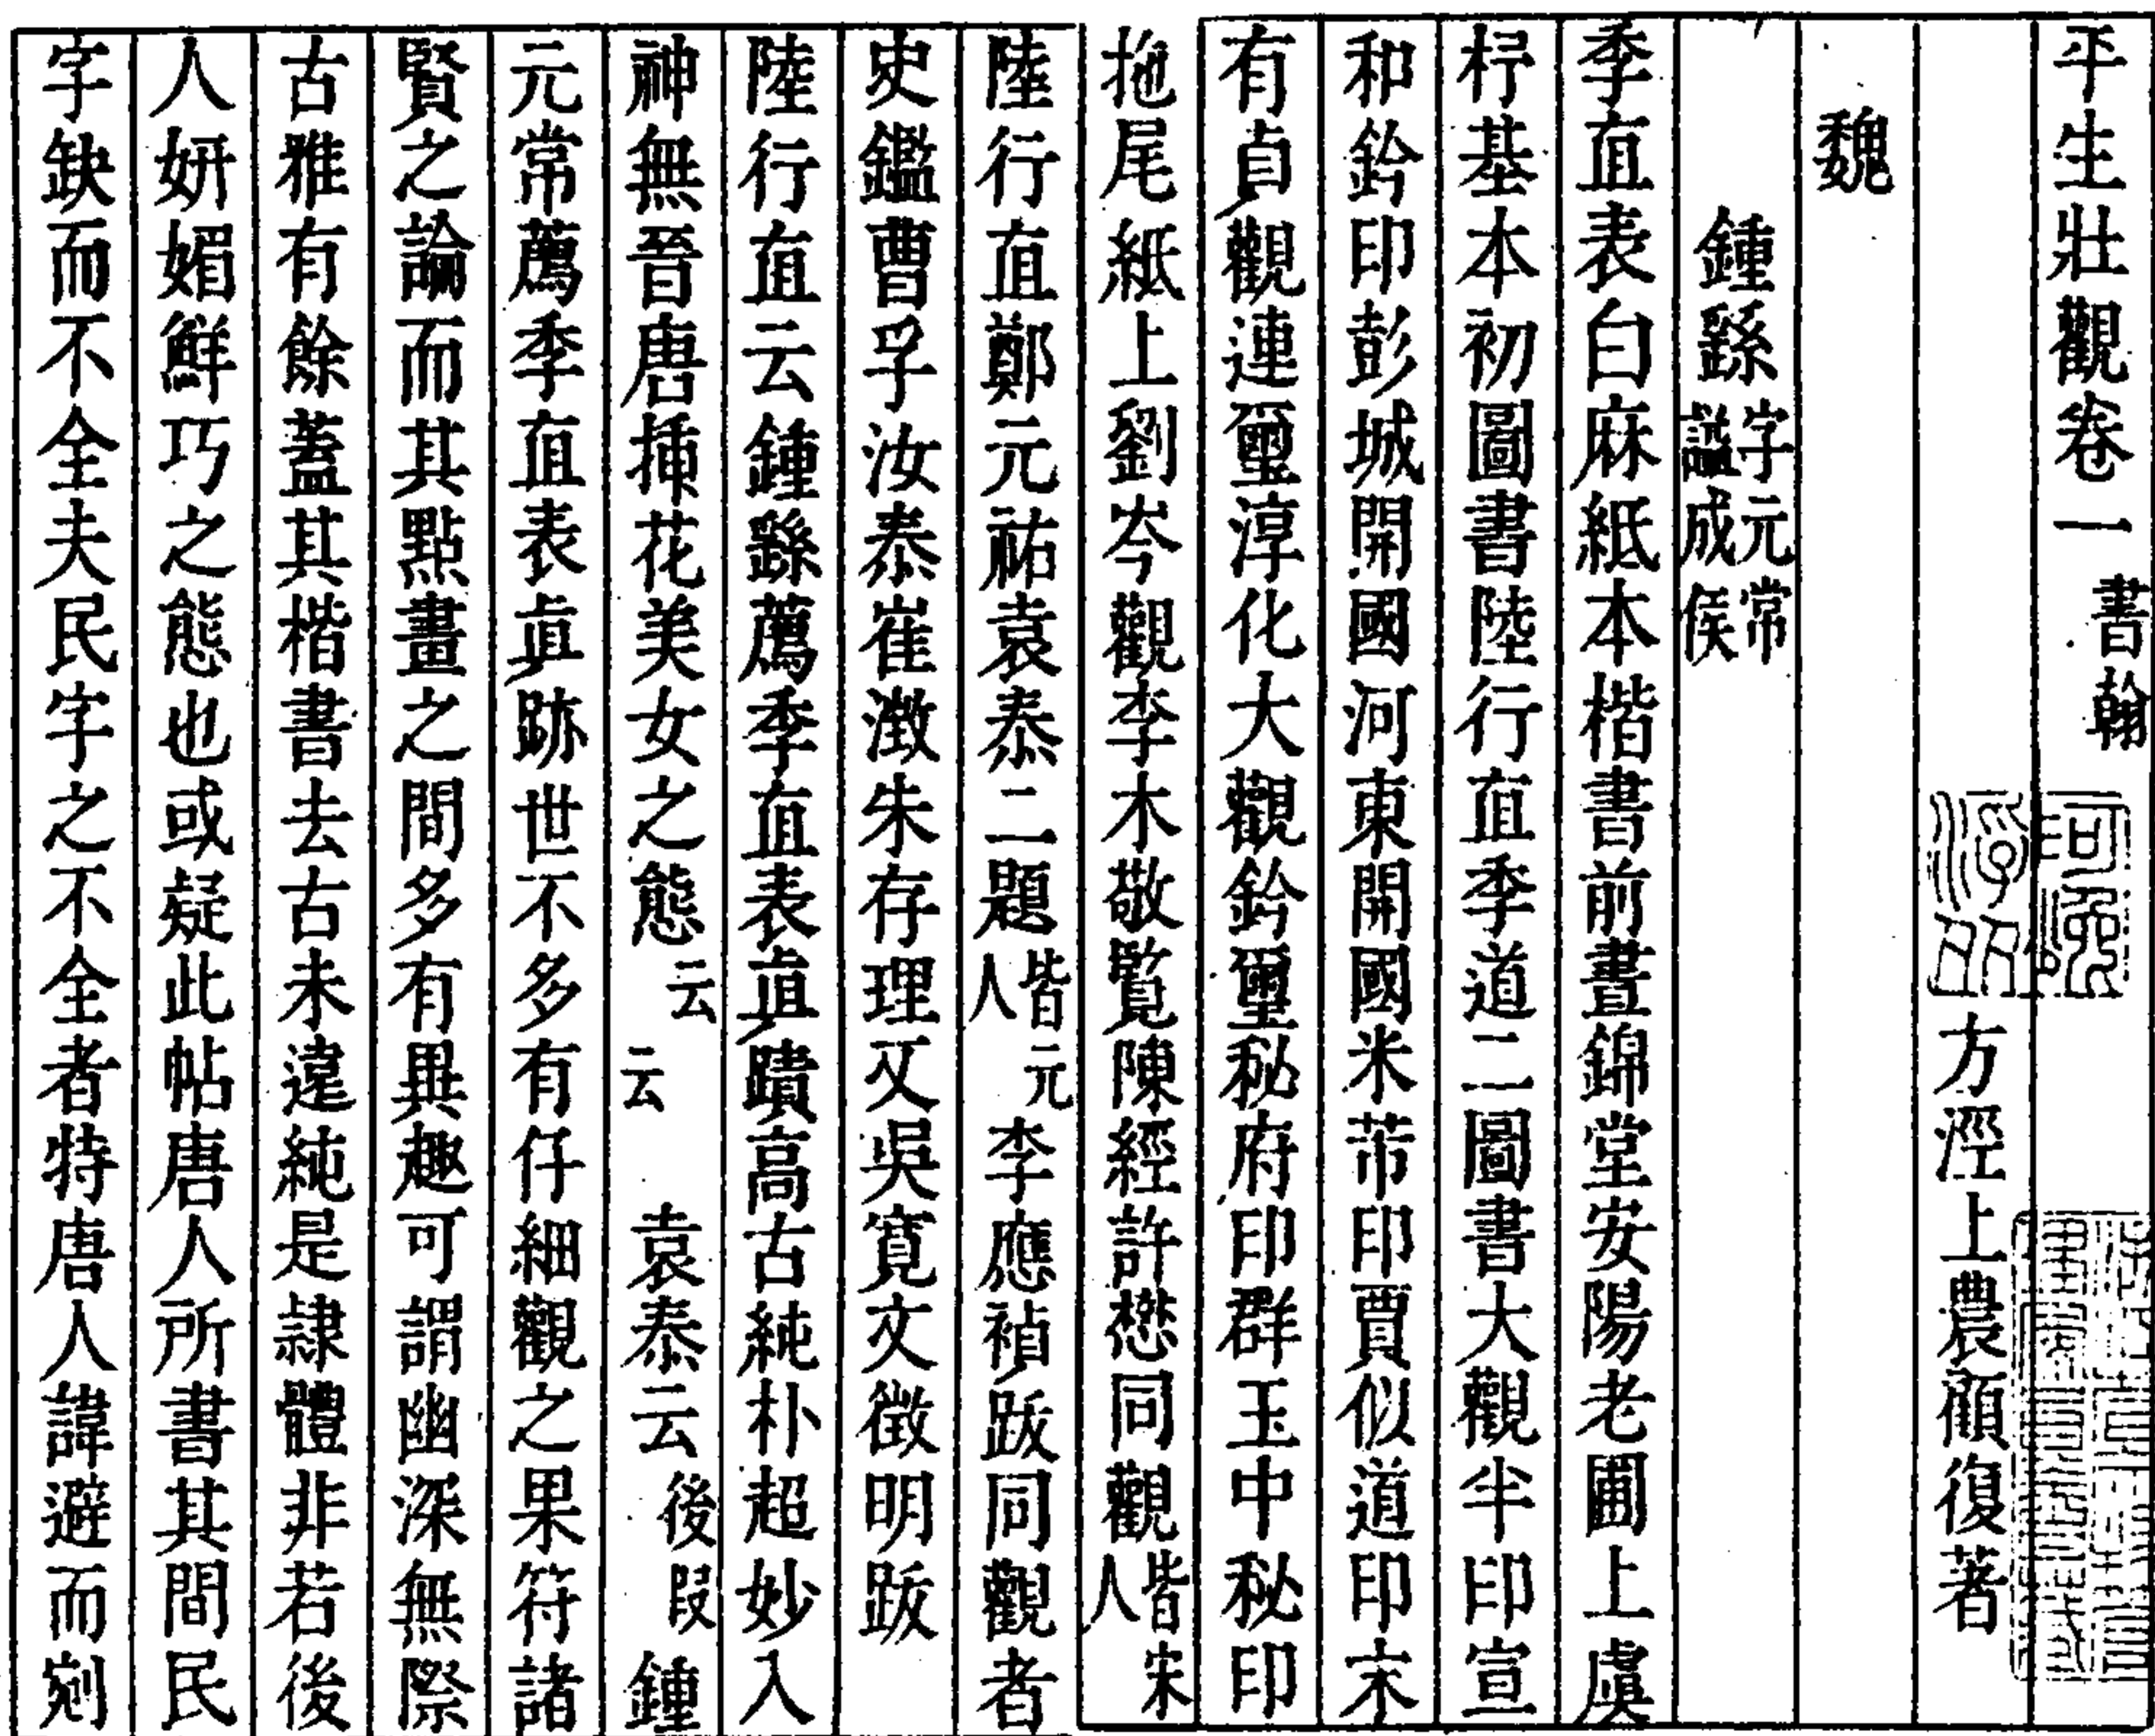 平生壯觀卷一 書翰
方涇上農顧復著
魏
鍾繇 字元常 諡成侯
季直表白麻紙本楷書前晝錦堂安陽老圃上虞
杼基本初圖書陸行直季道二圖書大觀半印宣
和鈐印彭城開國河東開國米芾印賈似道印宋
有貞觀連璽淳化大觀鈐璽秘府印群玉中秘印
拖尾紙上劉岑觀李木敬覧陳經許懋同觀 皆宋人
陸行直鄭元祐袁泰二題 皆元人 李應禎跋同觀者
史鑑曹孚汝泰崔澂朱存理又吳寬文徵明跋
陸行直云鍾繇薦季直表真蹟高古純朴超妙入
神無晉唐揷花美女之態 云云 袁泰云 後叚 鍾
元常薦季直表真跡世不多有仔細觀之果符諸
賢之論而其點畫之間多有異趣可謂幽深無際
古雅有餘蓋其楷書去古未遠純是隷體非若後
人妍媚鮮巧之態也或疑此帖唐人所書其間民
字缺而不全夫民字之不全者特唐人諱避而剜